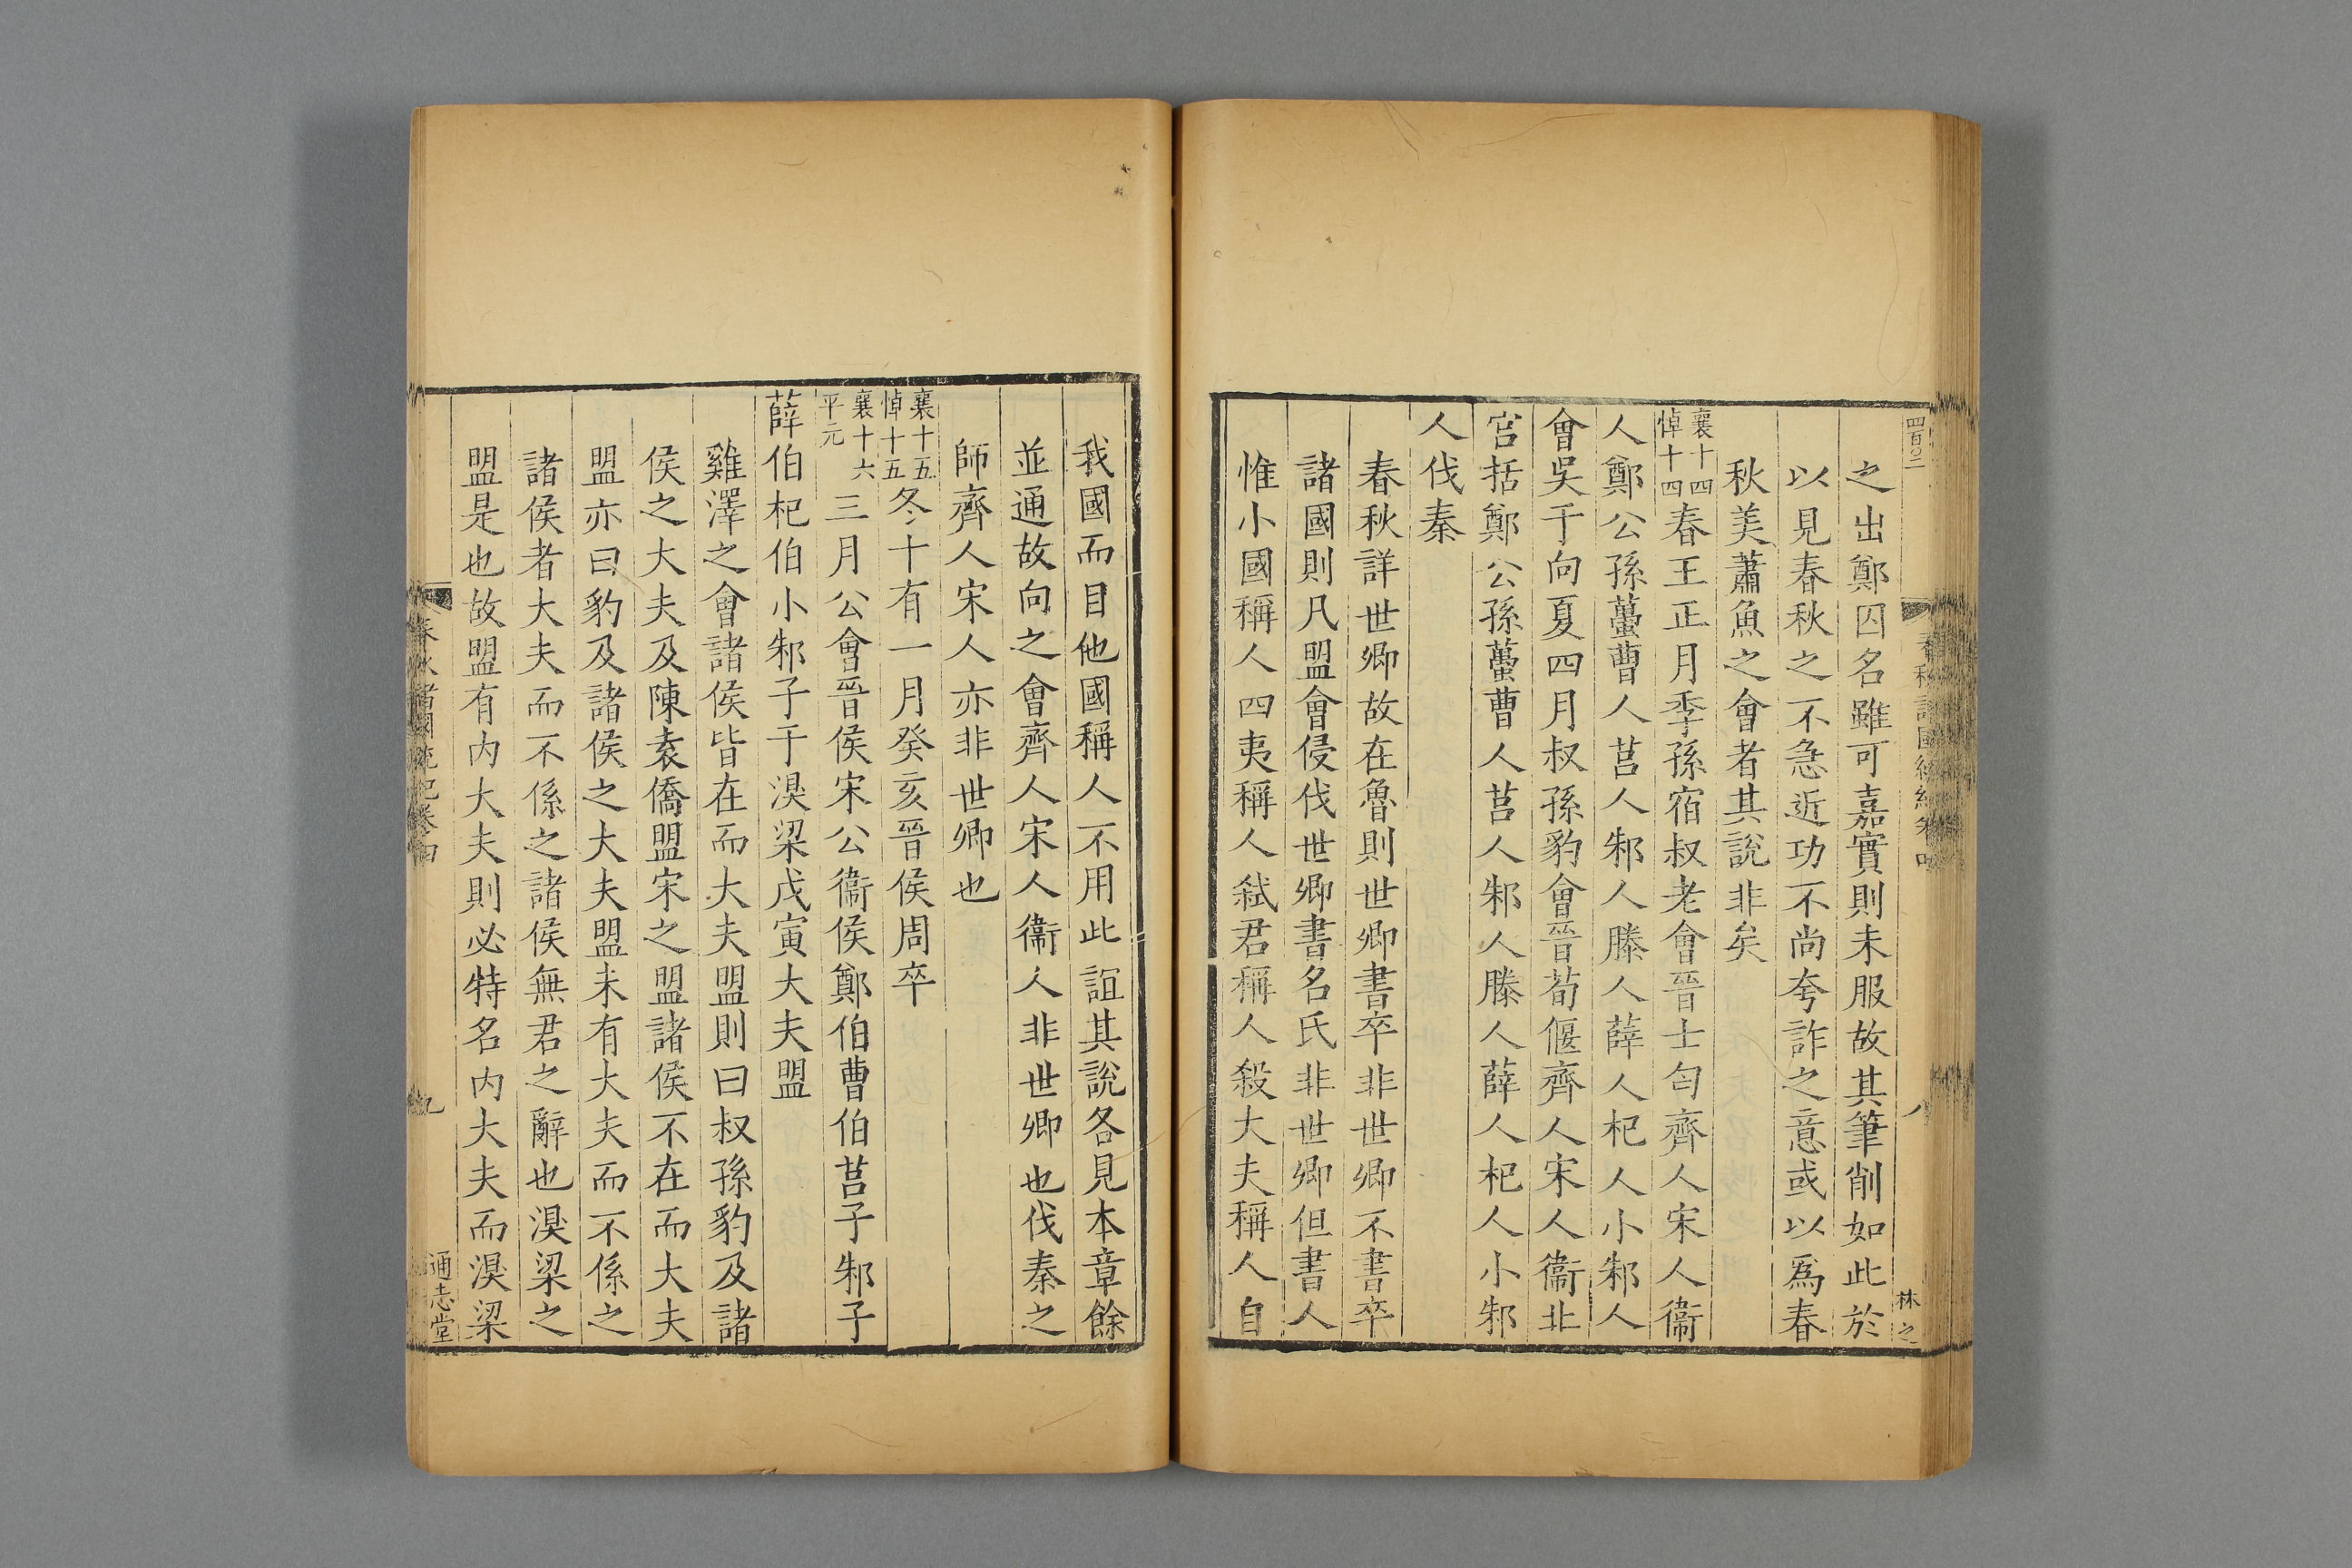 四百〇二
之出鄭囚名雖可嘉實則未服故其筆削如此於
以見春秋之不急近功不尚夸詐之意或以爲春
秋美蕭魚之會者其說非矣
襄十四
悼十四
春王正月季孫宿叔老會晉士匄齊人宋人衞
人鄭公孫蠆曹人莒人邾人滕人薛人杞人小邾人
會吳于向夏四月叔孫豹會晉荀偃齊人宋人衞北
宮括鄭公孫蠆曹人莒人邾人滕人薛人杞人小邾
人伐秦
春秋詳世卿故在魯則世卿書卒非世卿不書卒
諸國則凡盟會侵伐世卿書名氏非世卿但書人
惟小國稱人四夷稱人弑君稱人殺大夫稱人自
春秋諸國統紀卷四
八
林之
我國而目他國稱人不用此誼其說各見本章餘
並通故向之會齊人宋人衞人非世卿也伐秦之
師齊人宋人亦非世卿也
襄十五
悼十五
冬十有一月癸亥晉侯周卒
襄十六
平元
三月公會晉侯宋公衞侯鄭伯曹伯莒子邾子
薛伯杞伯小邾子于溴梁戊寅大夫盟
雞澤之會諸侯皆在而大夫盟則曰叔孫豹及諸
侯之大夫及陳袁僑盟宋之盟諸侯不在而大夫
盟亦曰豹及諸侯之大夫盟未有大夫而不係之
諸侯者大夫而不係之諸侯無君之辭也溴梁之
盟是也故盟有內大夫則必特名內大夫而溴梁
春秋諸國統紀卷四
九
通志堂